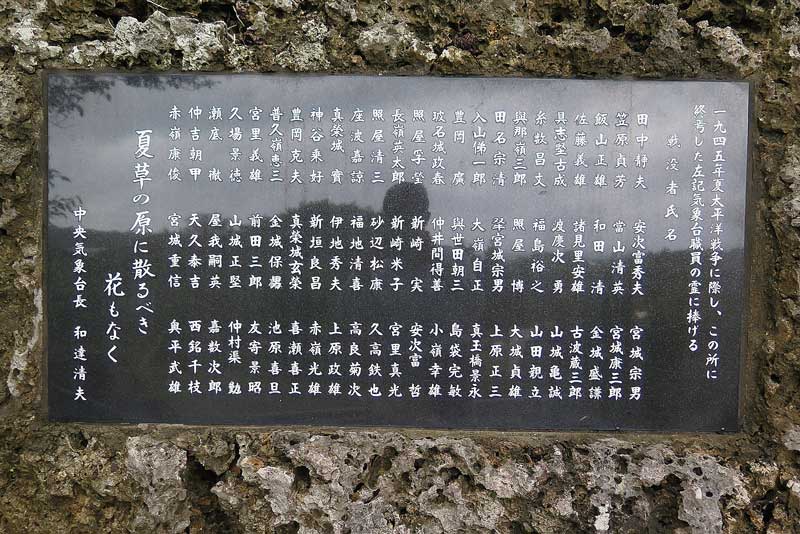 一九四五年夏太平洋戦争に際し、この所に
終焉した左記気象台職員の霊に捧げる
戦没者氏名
田中静夫 安次富秀夫 宮城宗男
笠原貞芳 當山清英 宮城康三郎
飯山正雄 和田清 金城盛謙
佐藤義雄 諸見里安雄 古波蔵三郎
具志堅古成 渡慶次勇 山城亀誠
糸数昌文 福島裕之 山田親立
與那嶺三郎 照屋博 大城貞雄
田名宗清 翠宮城宗男 上原正三
入山俤一郎 大嶺自正 真玉橋景永
豊岡廣 與世田朝三 島袋完敏
玻名城政春 仲井間得善 小嶺幸雄
照屋孚瑩 新崎実 安次富哲
長嶺英太郎 新崎米子 宮里真光
照屋清三 砂辺松康 久高鉄也
座波嘉諒 福地清喜 高良菊次
真榮城實 伊地秀夫 上原政雄
神谷乗好 新垣良昌 赤嶺光雄
豊岡克夫 真榮城玄榮 喜瀬喜正
普久嶺恵三 金城保勇 池原喜旦
宮里義雄 前田三郎 友寄景昭
久場景徳 山城正堅 仲村渠勉
瀬底徹 屋我嗣英 嘉数次郎
仲吉朝甲 天久泰吉 西銘千枝
赤嶺康俊 宮城重信 奥平武雄
夏草の原に散るべき
花もなく
中央気象台長 和達清夫